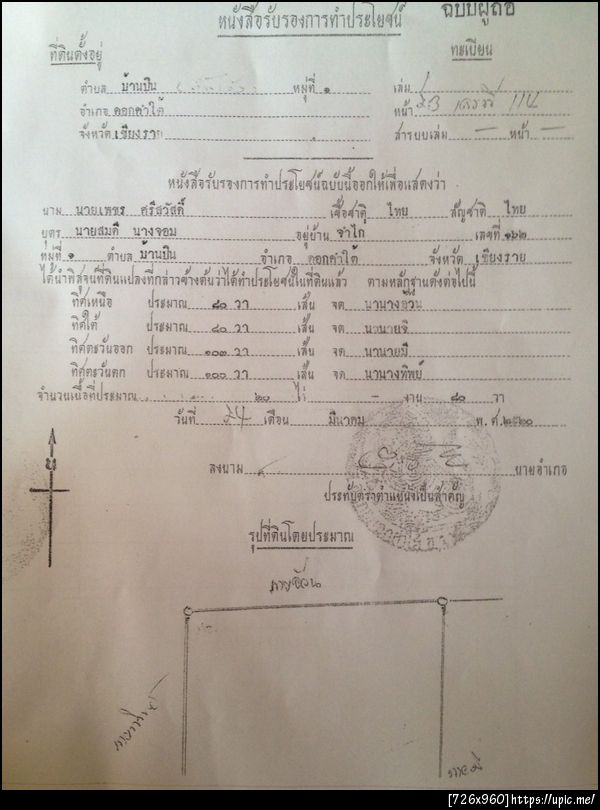 หนังสือรับรองการทำประโยชน์ ฉบับผู้ถือ
ที่ดินตั้งอยู่ ทะเบียน
ตำบล บ้านปิน หมู่ที่ ๑ เล่ม
อำเภอ ดอกคำใต้ หน้า
จังหวัด เชียงราย สารบบเล่ม — หน้า —
หนังสือรับรองการทำประโยชน์ฉบับนี้ออกให้เพื่อแสดงว่า
นาม นายเพชร ศรีสวัสดิ์ เชื้อชาติ ไทย สัญชาติ ไทย
บุตร นายสมดี นางจอม อยู่บ้าน จำไก่ เลขที่ ๑๖๒
หมู่ที่ ๑ ตำบล บ้านปิน อำเภอ ดอกคำใต้ จังหวัด เชียงราย
ได้นำพิสูจน์ที่ดินแปลงที่กล่าวข้างต้นว่าได้ทำประโยชน์ในที่ดินแล้ว ตามหลักฐานดังต่อไปนี้
ทิศเหนือ ประมาณ ๘๐ วา เส้น จด นานางอ้วน
ทิศใต้ ประมาณ ๘๐ วา เส้น จด
ทิศตะวันออก ประมาณ ๑๐๓ วา เส้น จด นานายมี
ทิศตะวันตก ประมาณ ๑๐๐ วา เส้น จด นานางทิพย์
จำนวนเนื้อที่ประมาณ ๒๐ ไร่ - งาน ๘๐ วา
วันที่ ๒๔ เดือน มีนาคม พ.ศ.
ลงนาม นายอำเภอ
ประทับตราตำแหน่งเป็นสำคัญ
น
รูปที่ดินโดยประมาณ
[726x960]https://upic.me/